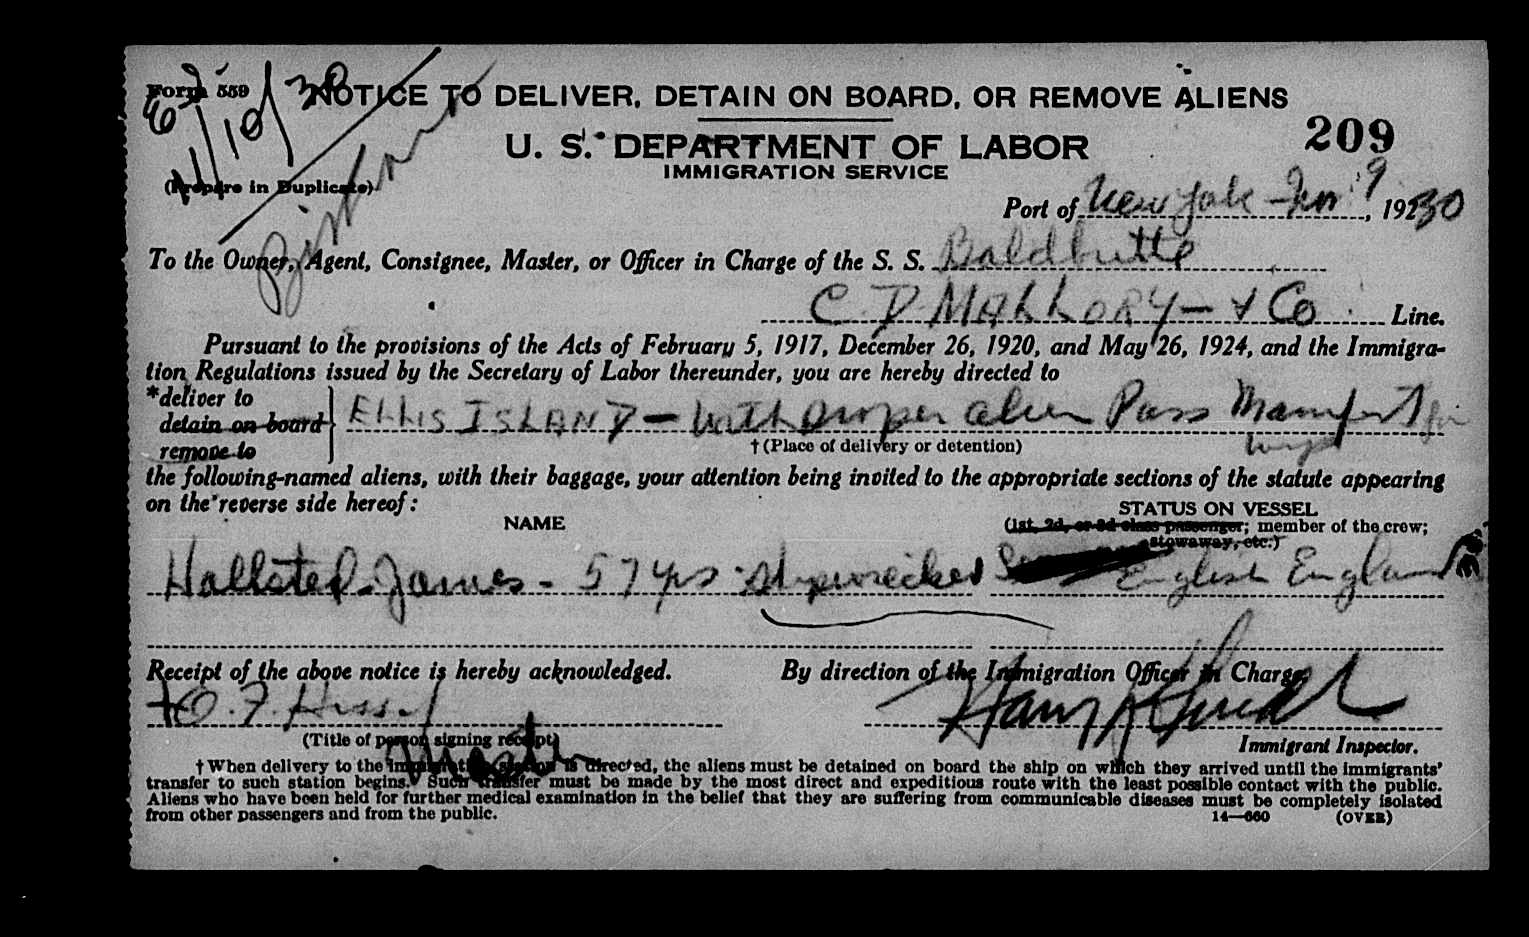 Form 559
NOTICE TO DELIVER, DETAIN ON BOARD, OR REMOVE ALIENS
209
U. S. DEPARTMENT OF LABOR
IMMIGRATION SERVICE
(Prepare in Duplicate)
Port of New York - Jan 9, 1930
To the Owner, Agent, Consignee, Master, or Officer in Charge of the S. S. Baldbutte
C. D. MALLORY - & Co Line.
Pursuant to the provisions of the Acts of February 5, 1917, December 26, 1920, and May 26, 1924, and the Immigra-
tion Regulations issued by the Secretary of Labor thereunder, you are hereby directed to
*deliver to
detain on board
remove to
ELLIS ISLAND - with proper alien Pass Manifest for
† (Place of delivery or detention)
the following-named aliens, with their baggage, your attention being invited to the appropriate sections of the statute appearing
on the reverse side hereof:
NAME
STATUS ON VESSEL
(1st, 2d, or 3d class passenger; member of the crew;
stowaway, etc.)
Hallsted James - 57 yrs - shipwrecked English England
Receipt of the above notice is hereby acknowledged.
By direction of the Immigration Officer in Charge,
(Title of person signing receipt)
Immigrant Inspector.
† When delivery to the immigration station is directed, the aliens must be detained on board the ship on which they arrived until the immigrants'
transfer to such station begins. Such transfer must be made by the most direct and expeditious route with the least possible contact with the public.
Aliens who have been held for further medical examination in the belief that they are suffering from communicable diseases must be completely isolated
from other passengers and from the public.
14—660
(OVER)